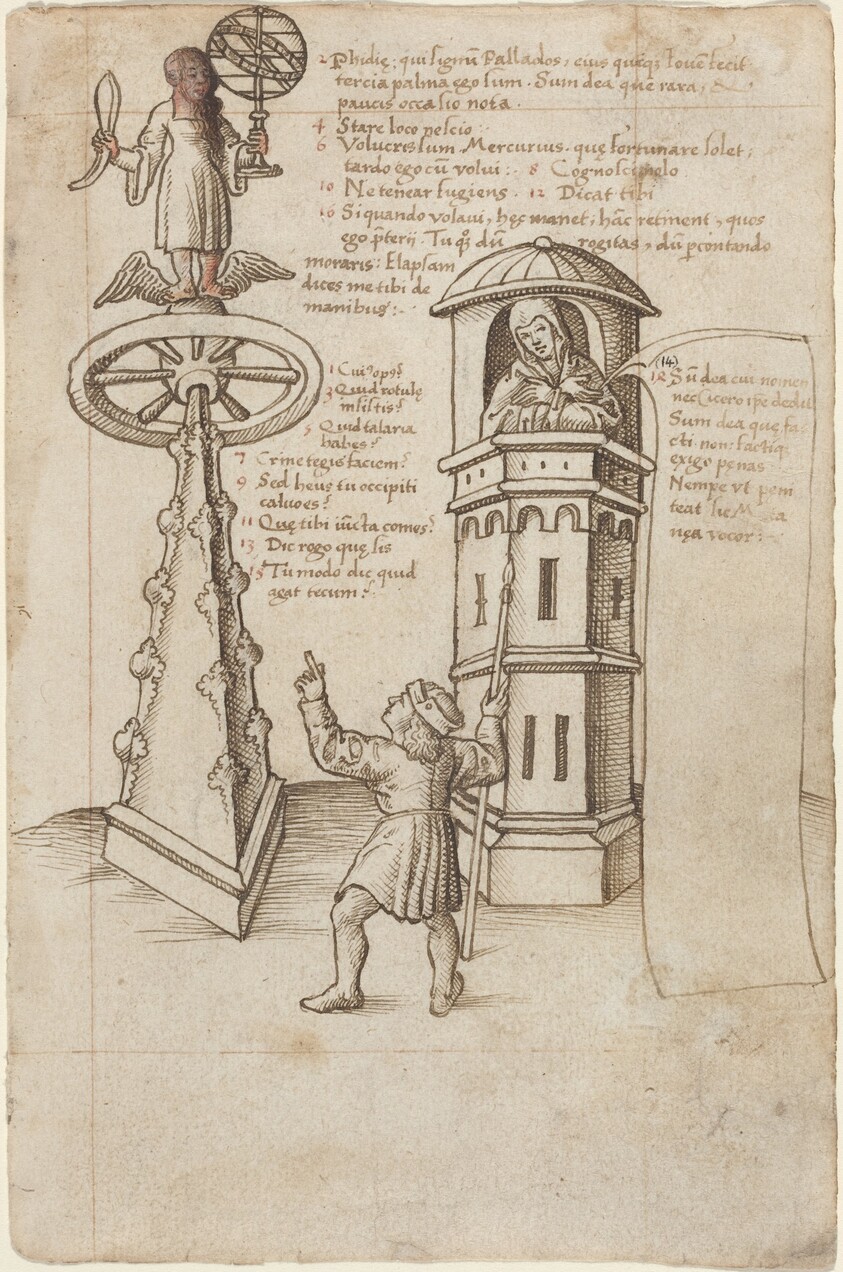 2 Phidię: qui signū Pallados, eius quęq; Iouē fecit
tercia palma ego sum. Sum dea que rara, &
paucis occasio nota.
4 Stare loco nescio:
6 Volucris sum. Mercurius. quę fortunare solet;
tardo ego cū volui:. 8 Cognosci nelo
10 Ne tenear fugiens. 12 Dicat tibi
16 Si quando volaui, hęc manet; hāc retinent, quos
ego p̄terij. Tu q; dū rogitas, dū pcontando
moraris: Elapsam
dices me tibi de
manibus:.
1 Cui9 op9?
3 Quid rotulę
insistis?
5 Quid talaria
habes?
7 Crine tegis faciem?
9 Sed heus tu occipiti
caluo es?
11 Quę tibi iūcta comes?
13 Dic rogo quę sis
15 Tu modo dic quid
agat tecum?
(14)
Sū dea cui nomen
nec Cicero ipē dedit
Sum dea quę fa-
cti. non. factiq;
exigo penas
Nempe vt peni
teat sic
nęa vocor: